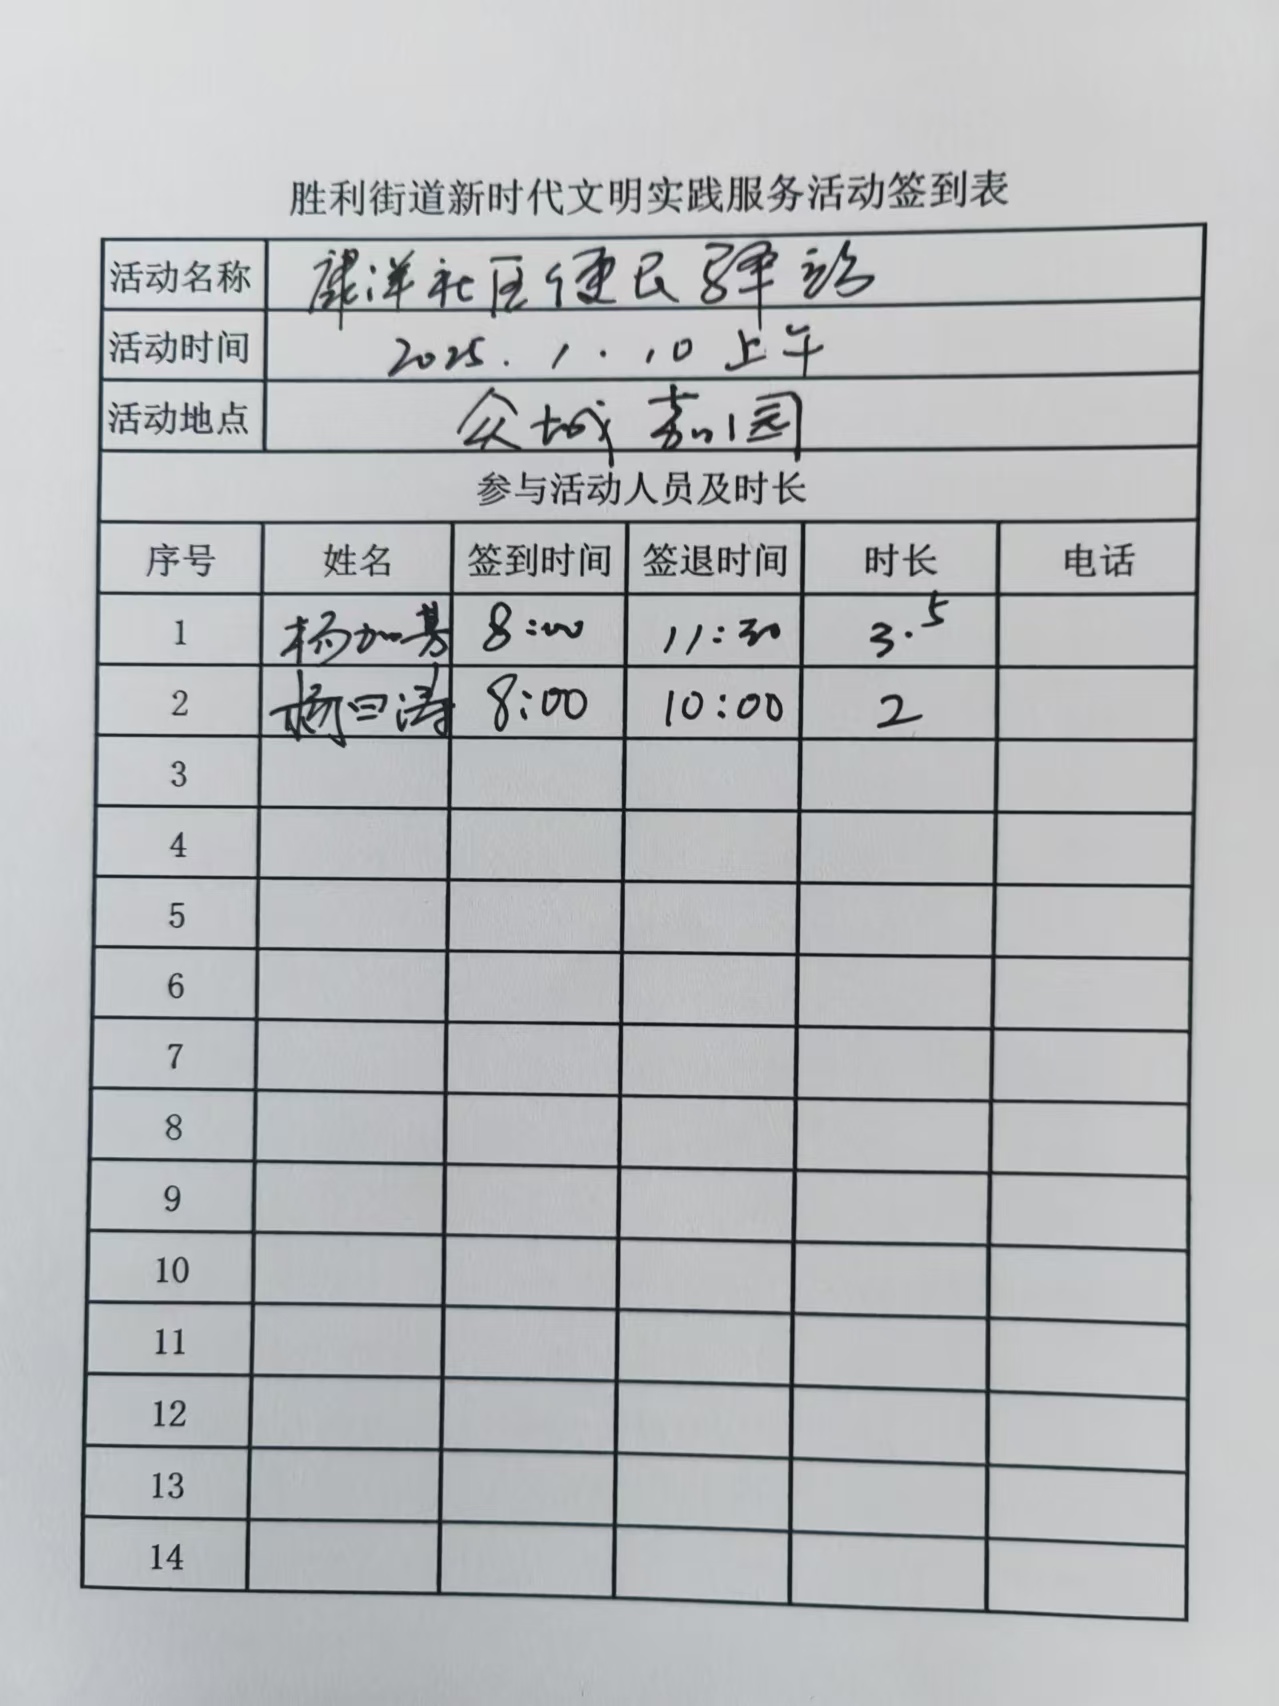 胜利街道新时代文明实践服务活动签到表
活动名称 康洋社区便民驿站
活动时间 2025.1.10上午
活动地点 众城嘉园
参与活动人员及时长
序号 姓名 签到时间 签退时间 时长 电话
1 杨加 8:00 11:30 3.5
2 杨曰涛 8:00 10:00 2
3
4
5
6
7
8
9
10
11
12
13
14